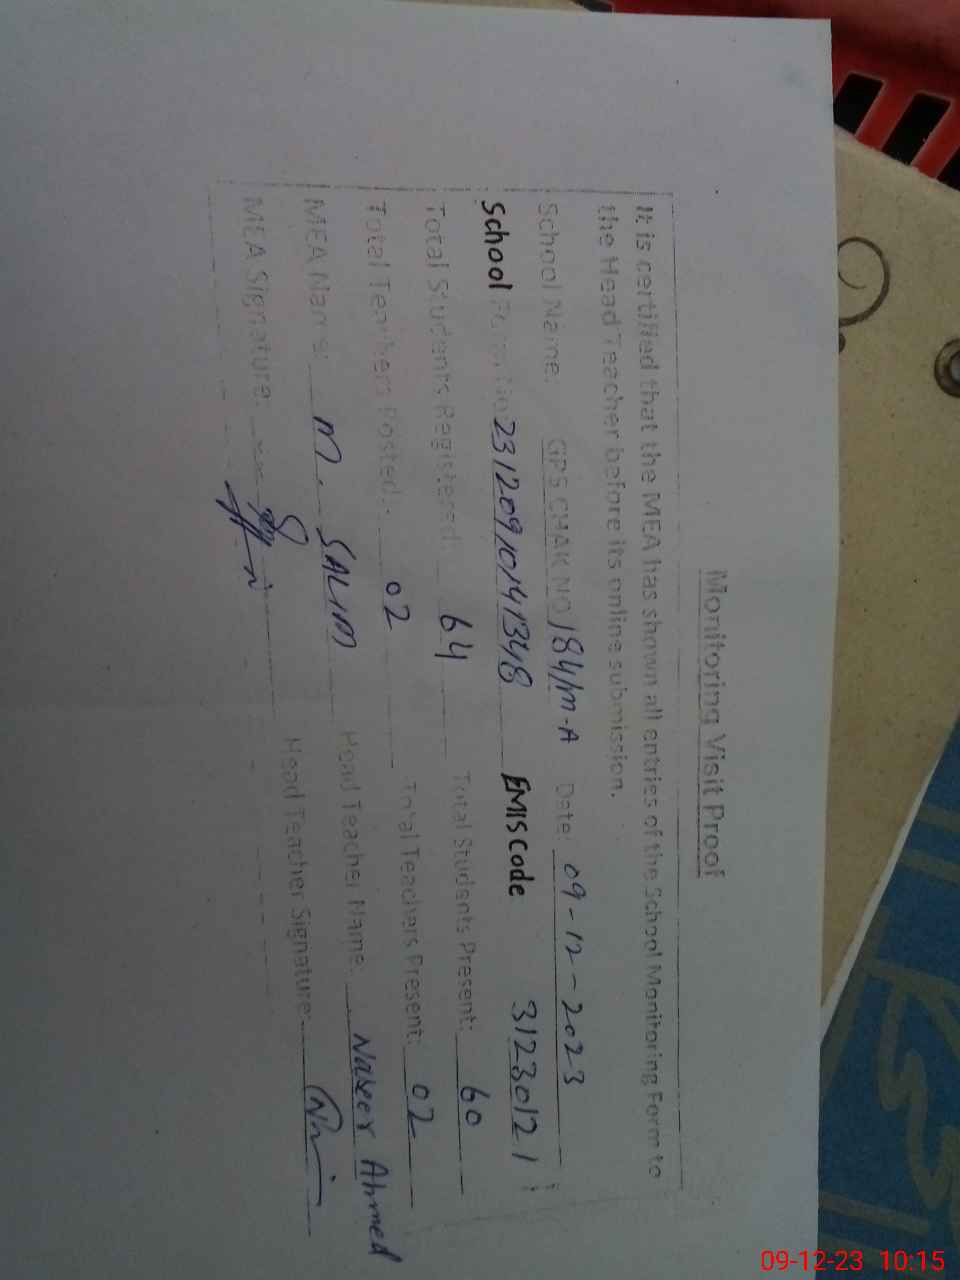 Monitoring Visit Proof
It is certified that the MEA has shown all entries of the School Monitoring Form to
the Head Teacher before its online submission.
School Name: GPS CHAK NO 184/m-A Date: 09-12-2023
School Form No: 23120910141348 EMIS Code 31230121
Total Students Registered: 64 Total Students Present: 60
Total Teachers Posted: 02 Total Teachers Present: 02
MEA Name: M. SALIM Head Teacher Name: Naseer Ahmed
MEA Signature: Head Teacher Signature:
09-12-23 10:15